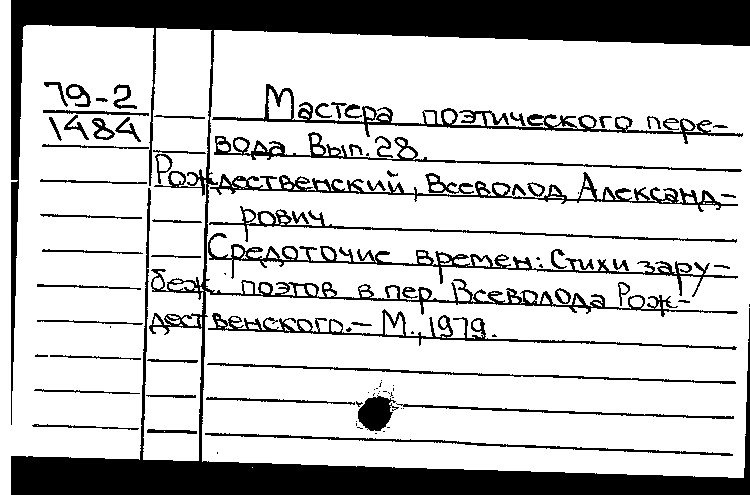 79-2
1484
Мастера поэтического пере-
вода. Вып. 28.
Рождественский, Всеволод Александ-
рович.
Средоточие времен: Стихи зару-
беж. поэтов в пер. Всеволода Рож-
дественского.– М., 1979.